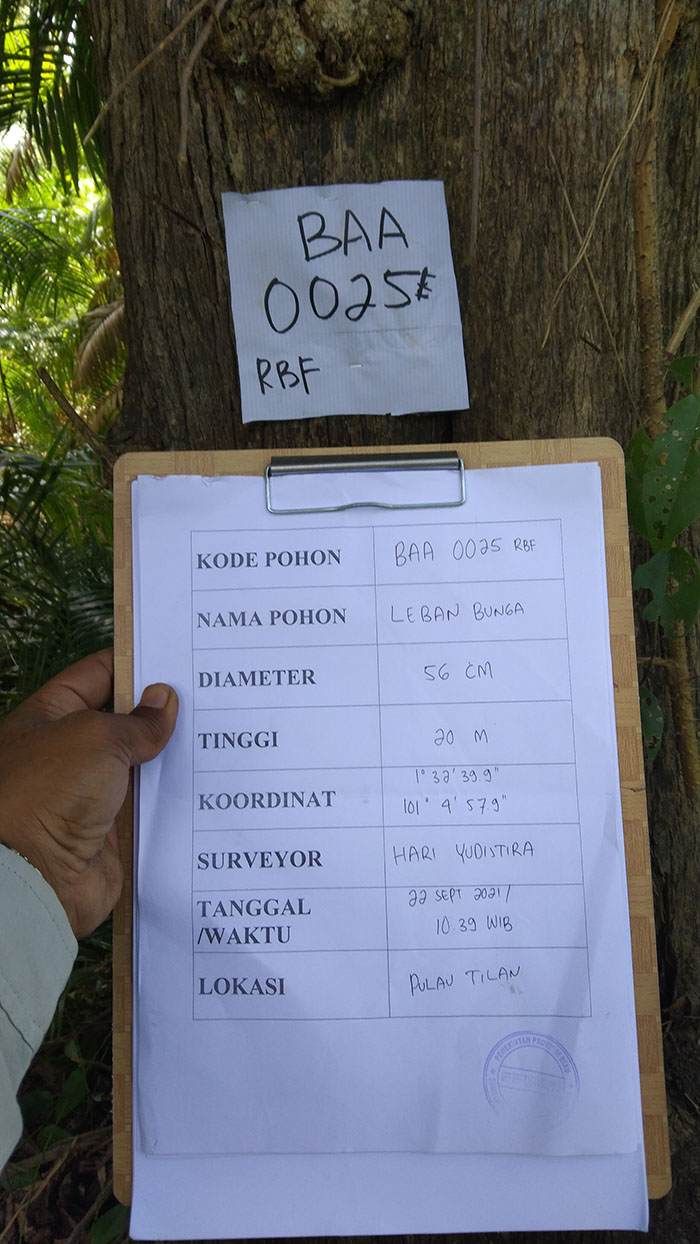 BAA
0025
RBF
KODE POHON BAA 0025 RBF
NAMA POHON LEBAN BUNGA
DIAMETER 56 CM
TINGGI 20 M
KOORDINAT 1° 32' 39.9"
101° 4' 57.9"
SURVEYOR HARI YUDISTIRA
TANGGAL 22 SEPT 2021 /
/WAKTU 10.39 WIB
LOKASI PULAU TILAN
PEMERINTAH